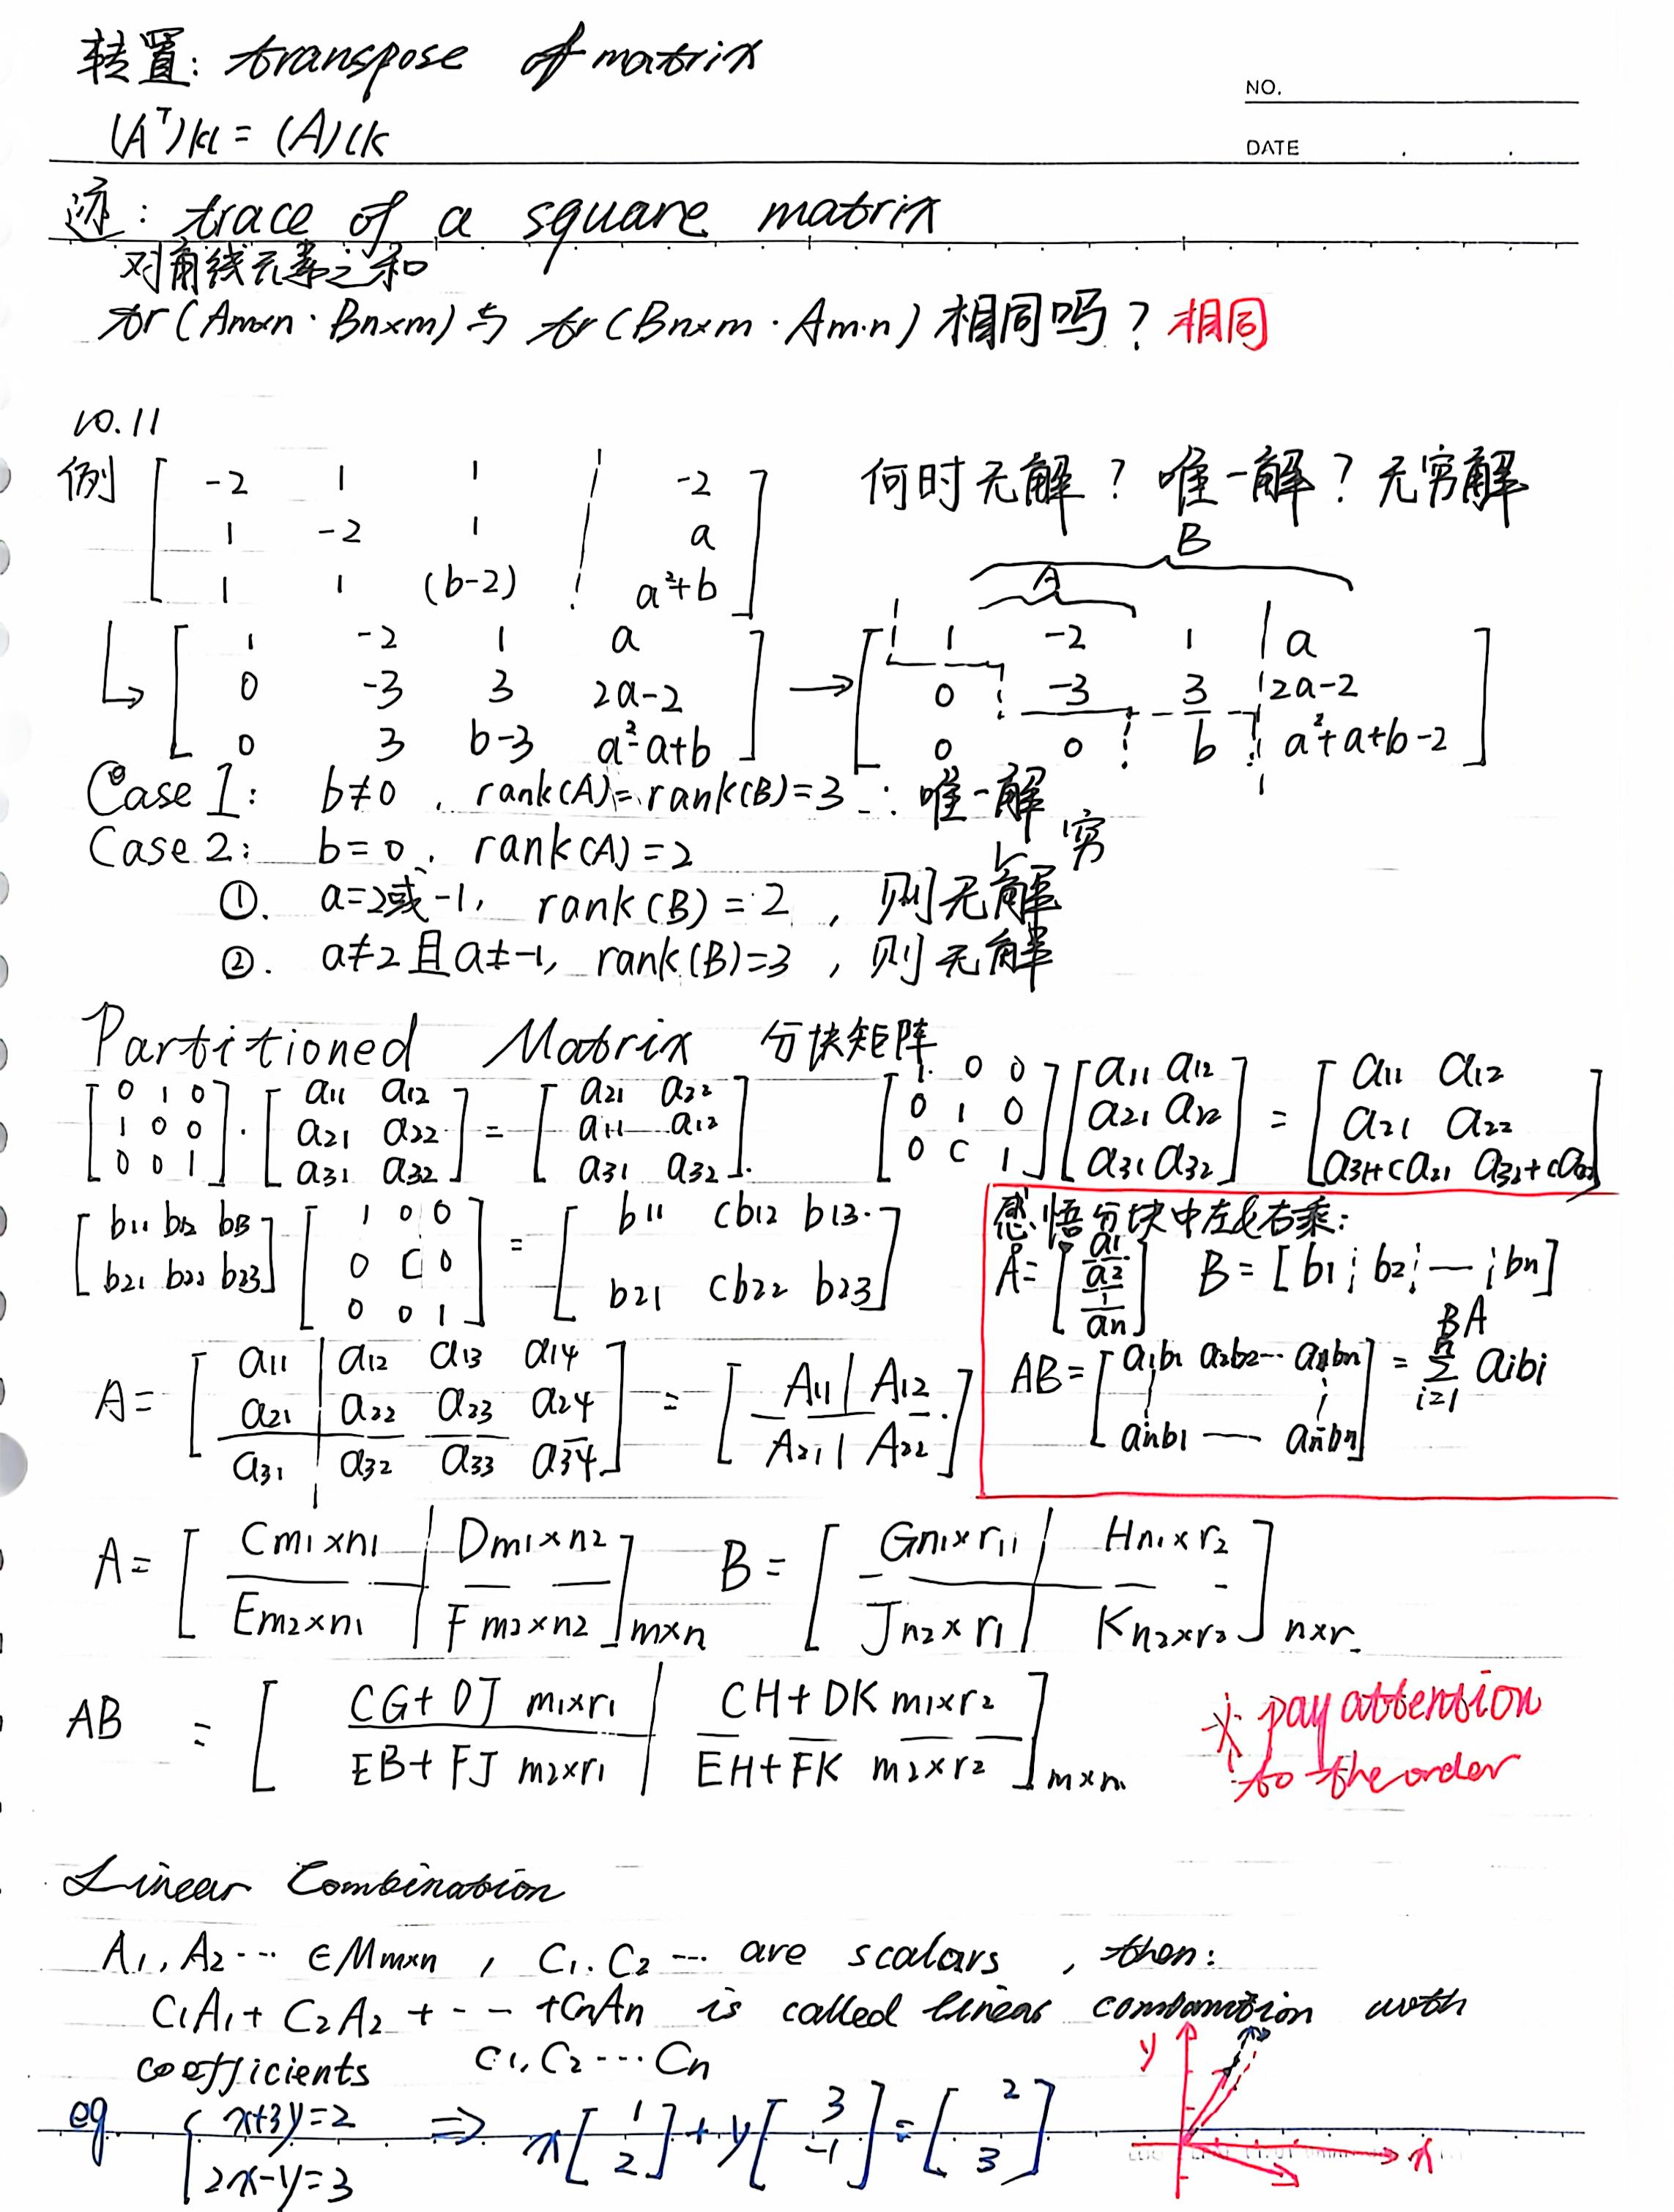 转置: transpose of matrix
NO.
(Aᵀ)kl = (A)lk
DATE
迹: trace of a square matrix
对角线元素之和
tr(Am×n · Bn×m) 与 tr(Bn×m · Am·n) 相同吗? 相同
10.11
例 [ -2 1 1 | -2
1 -2 1 | a
1 1 (b-2) | a²+b ]
何时无解? 唯一解? 无穷解
B
A
↳ [ 1 -2 1 a
0 -3 3 2a-2
0 3 b-3 a²-a+b ]
→ [ 1 -2 1 | a
0 -3 3 | 2a-2
0 0 b | a²+a+b-2 ]
Case 1: b≠0, rank(A)=rank(B)=3 ∴ 唯一解
Case 2: b=0, rank(A)=2
①. a=2或-1, rank(B)=2, 则无穷解
②. a≠2且a≠-1, rank(B)=3, 则无解
Partitioned Matrix 分块矩阵
[ 0 1 0
1 0 0
0 0 1 ] · [ a11 a12
a21 a22
a31 a32 ] = [ a21 a22
a11 a12
a31 a32 ].
[ 1 0 0
0 1 0
0 c 1 ] [ a11 a12
a21 a22
a31 a32 ] = [ a11 a12
a21 a22
a31+ca21 a32+ca22 ]
[ b11 b12 b13
b21 b22 b23 ] [ 1 0 0
0 c 0
0 0 1 ] = [ b11 cb12 b13
b21 cb22 b23 ]
感悟分块中左&右乘:
A = [ a1
a2
an ] B = [ b1 ¦ b2 ¦ — ¦ bn ]
BA
AB = [ a1b1 a2b2 ··· anbn
anb1 — anbn ] = n Σ i=1 aibi
A = [ a11 | a12 a13 a14
a21 | a22 a23 a24
a31 | a32 a33 a34 ] = [ A11 | A12
A21 | A22 ]
A = [ Cm1×n1 | Dm1×n2
Em2×n1 | Fm2×n2 ]m×n B = [ Gn1×r1 | Hn1×r2
Jn2×r1 | Kn2×r2 ]n×r
AB = [ CG+DJ m1×r1 | CH+DK m1×r2
EB+FJ m2×r1 | EH+FK m2×r2 ]m×n
* pay attention
to the order
Linear Combination
A1, A2 ··· ∈Mm×n, C1. C2 ··· are scalars, then:
C1A1+ C2A2 + - - +CnAn is called linear combination with
coefficients C1, C2 ··· Cn
y
eg { x+3y=2
2x-y=3 ⇒ x[ 1
2 ] + y[ 3
-1 ] = [ 2
3 ]
x